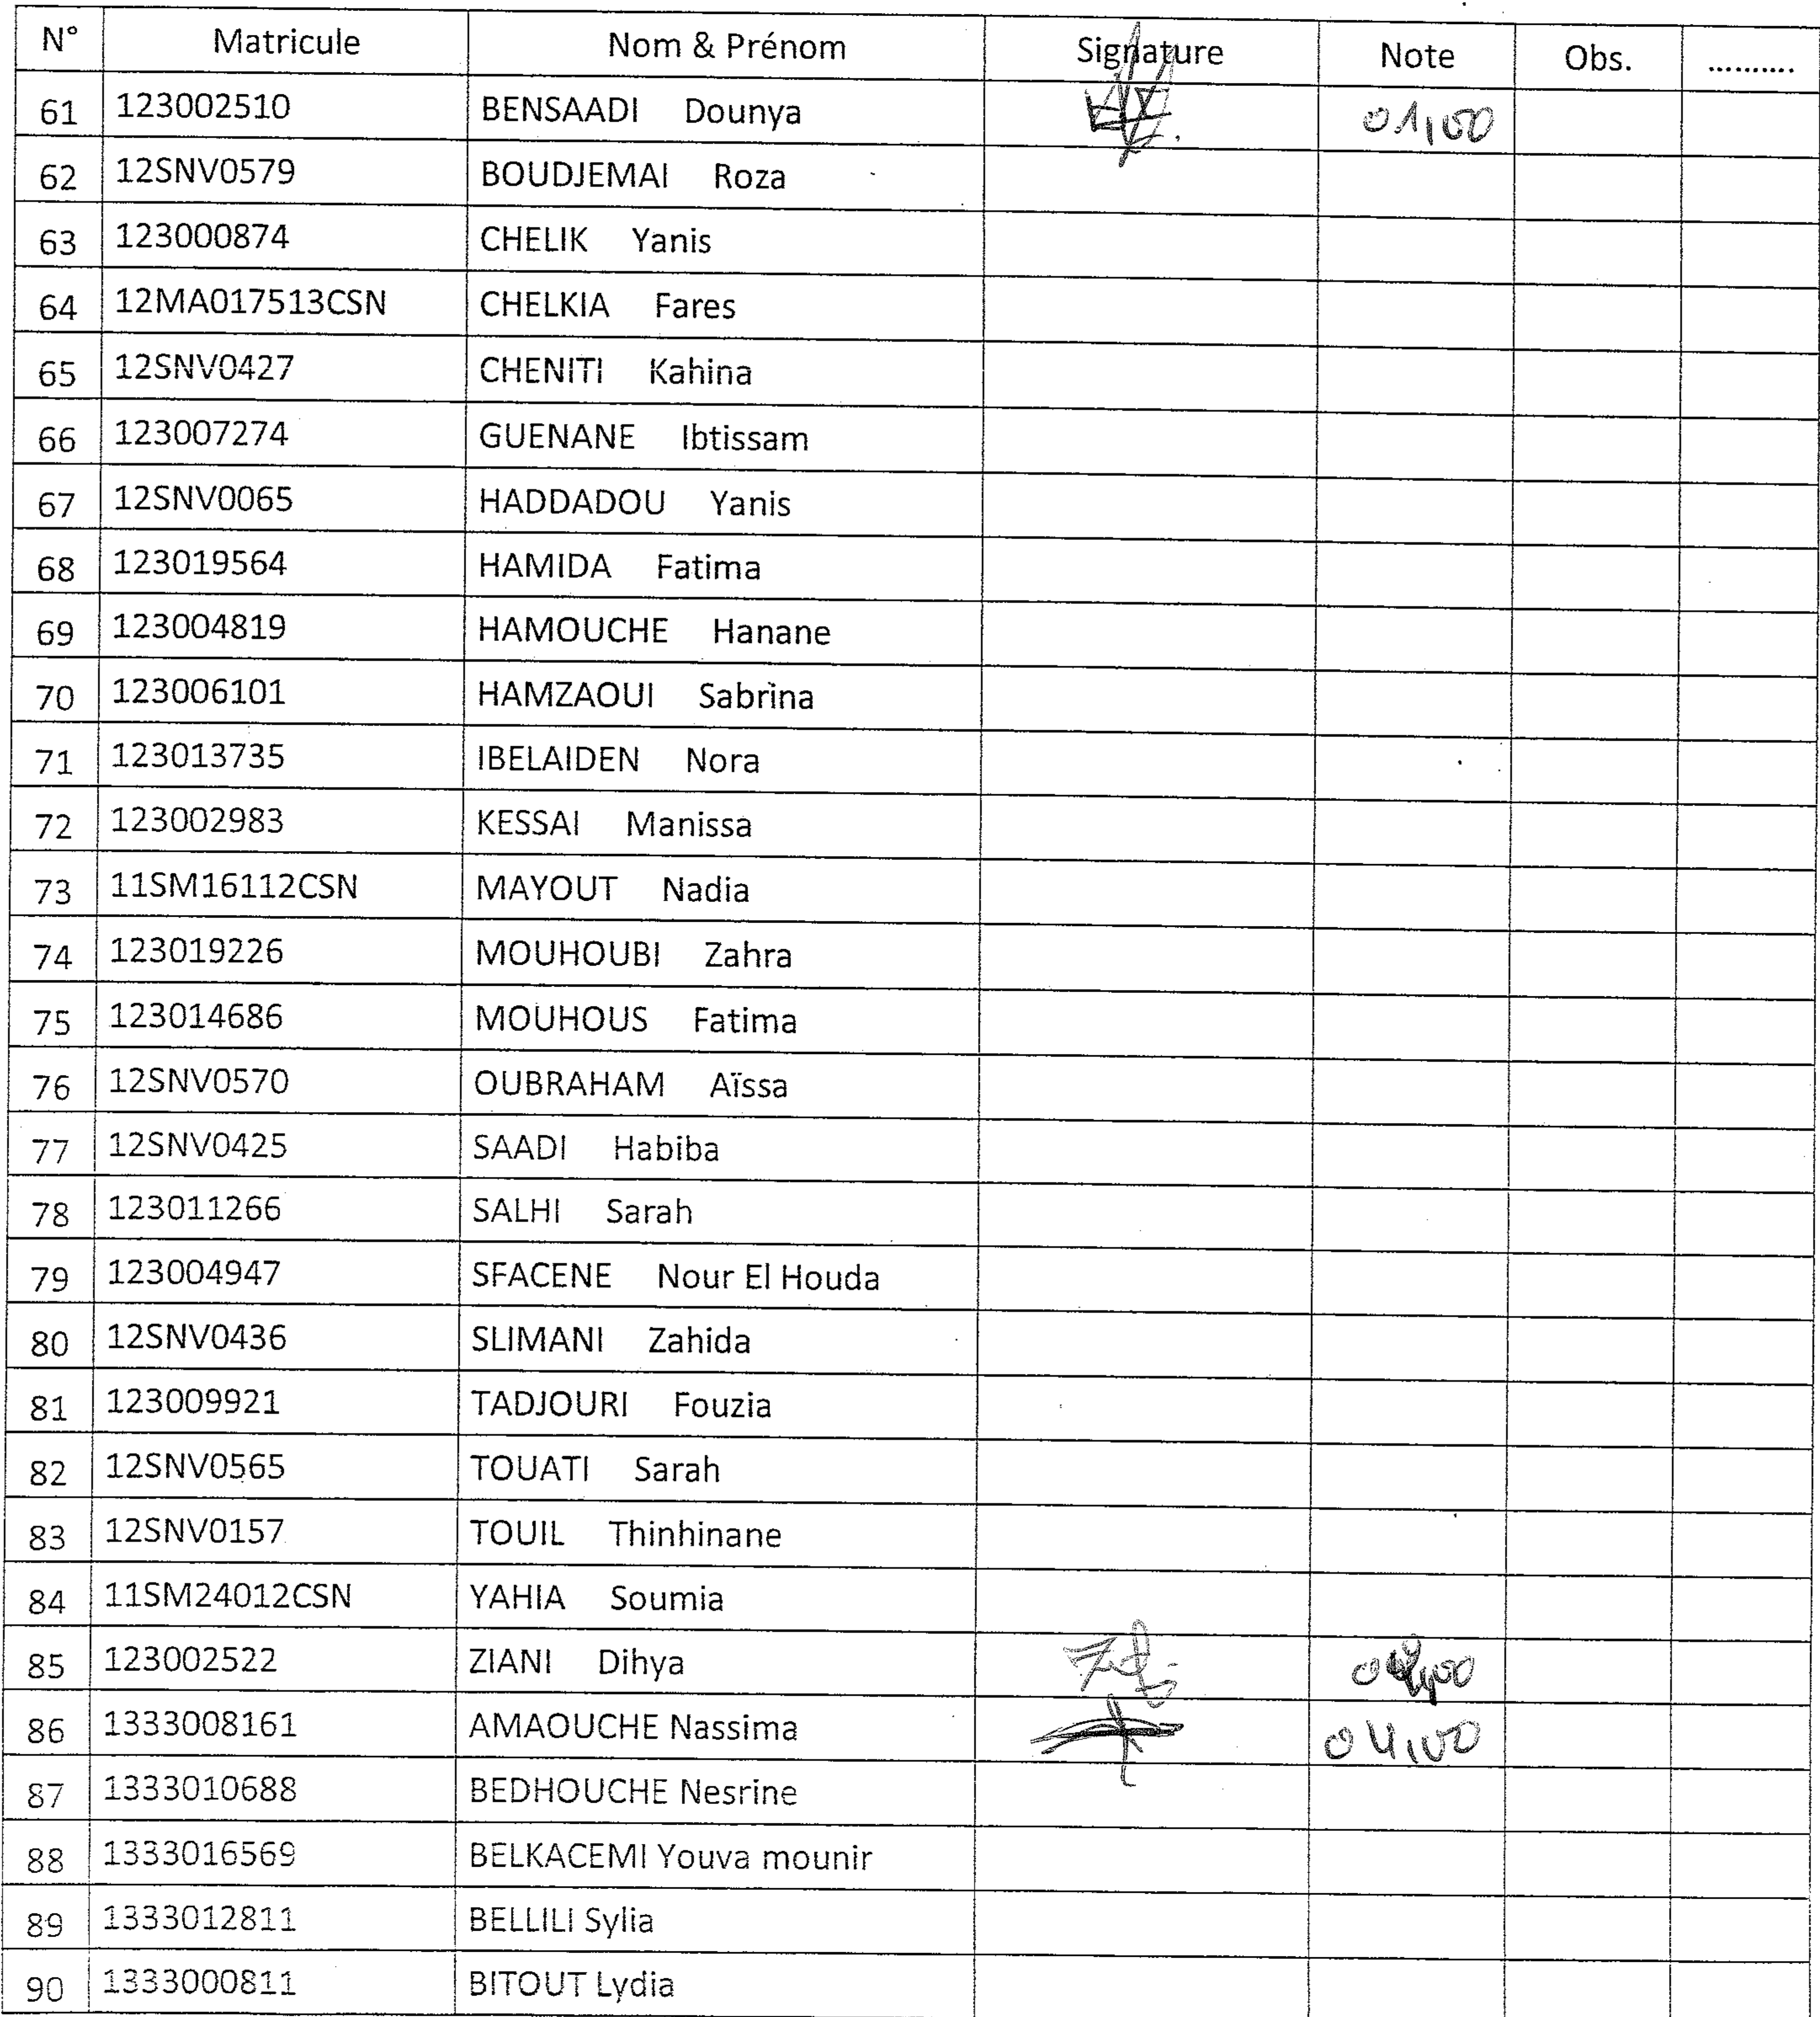 N° Matricule Nom & Prénom Signature Note Obs. ..........
61 123002510 BENSAADI Dounya 01,00
62 12SNV0579 BOUDJEMAI Roza
63 123000874 CHELIK Yanis
64 12MA017513CSN CHELKIA Fares
65 12SNV0427 CHENITI Kahina
66 123007274 GUENANE Ibtissam
67 12SNV0065 HADDADOU Yanis
68 123019564 HAMIDA Fatima
69 123004819 HAMOUCHE Hanane
70 123006101 HAMZAOUI Sabrina
71 123013735 IBELAIDEN Nora
72 123002983 KESSAI Manissa
73 11SM16112CSN MAYOUT Nadia
74 123019226 MOUHOUBI Zahra
75 123014686 MOUHOUS Fatima
76 12SNV0570 OUBRAHAM Aïssa
77 12SNV0425 SAADI Habiba
78 123011266 SALHI Sarah
79 123004947 SFACENE Nour El Houda
80 12SNV0436 SLIMANI Zahida
81 123009921 TADJOURI Fouzia
82 12SNV0565 TOUATI Sarah
83 12SNV0157 TOUIL Thinhinane
84 11SM24012CSN YAHIA Soumia
85 123002522 ZIANI Dihya
86 1333008161 AMAOUCHE Nassima 04,00
87 1333010688 BEDHOUCHE Nesrine
88 1333016569 BELKACEMI Youva mounir
89 1333012811 BELLILI Sylia
90 1333000811 BITOUT Lydia